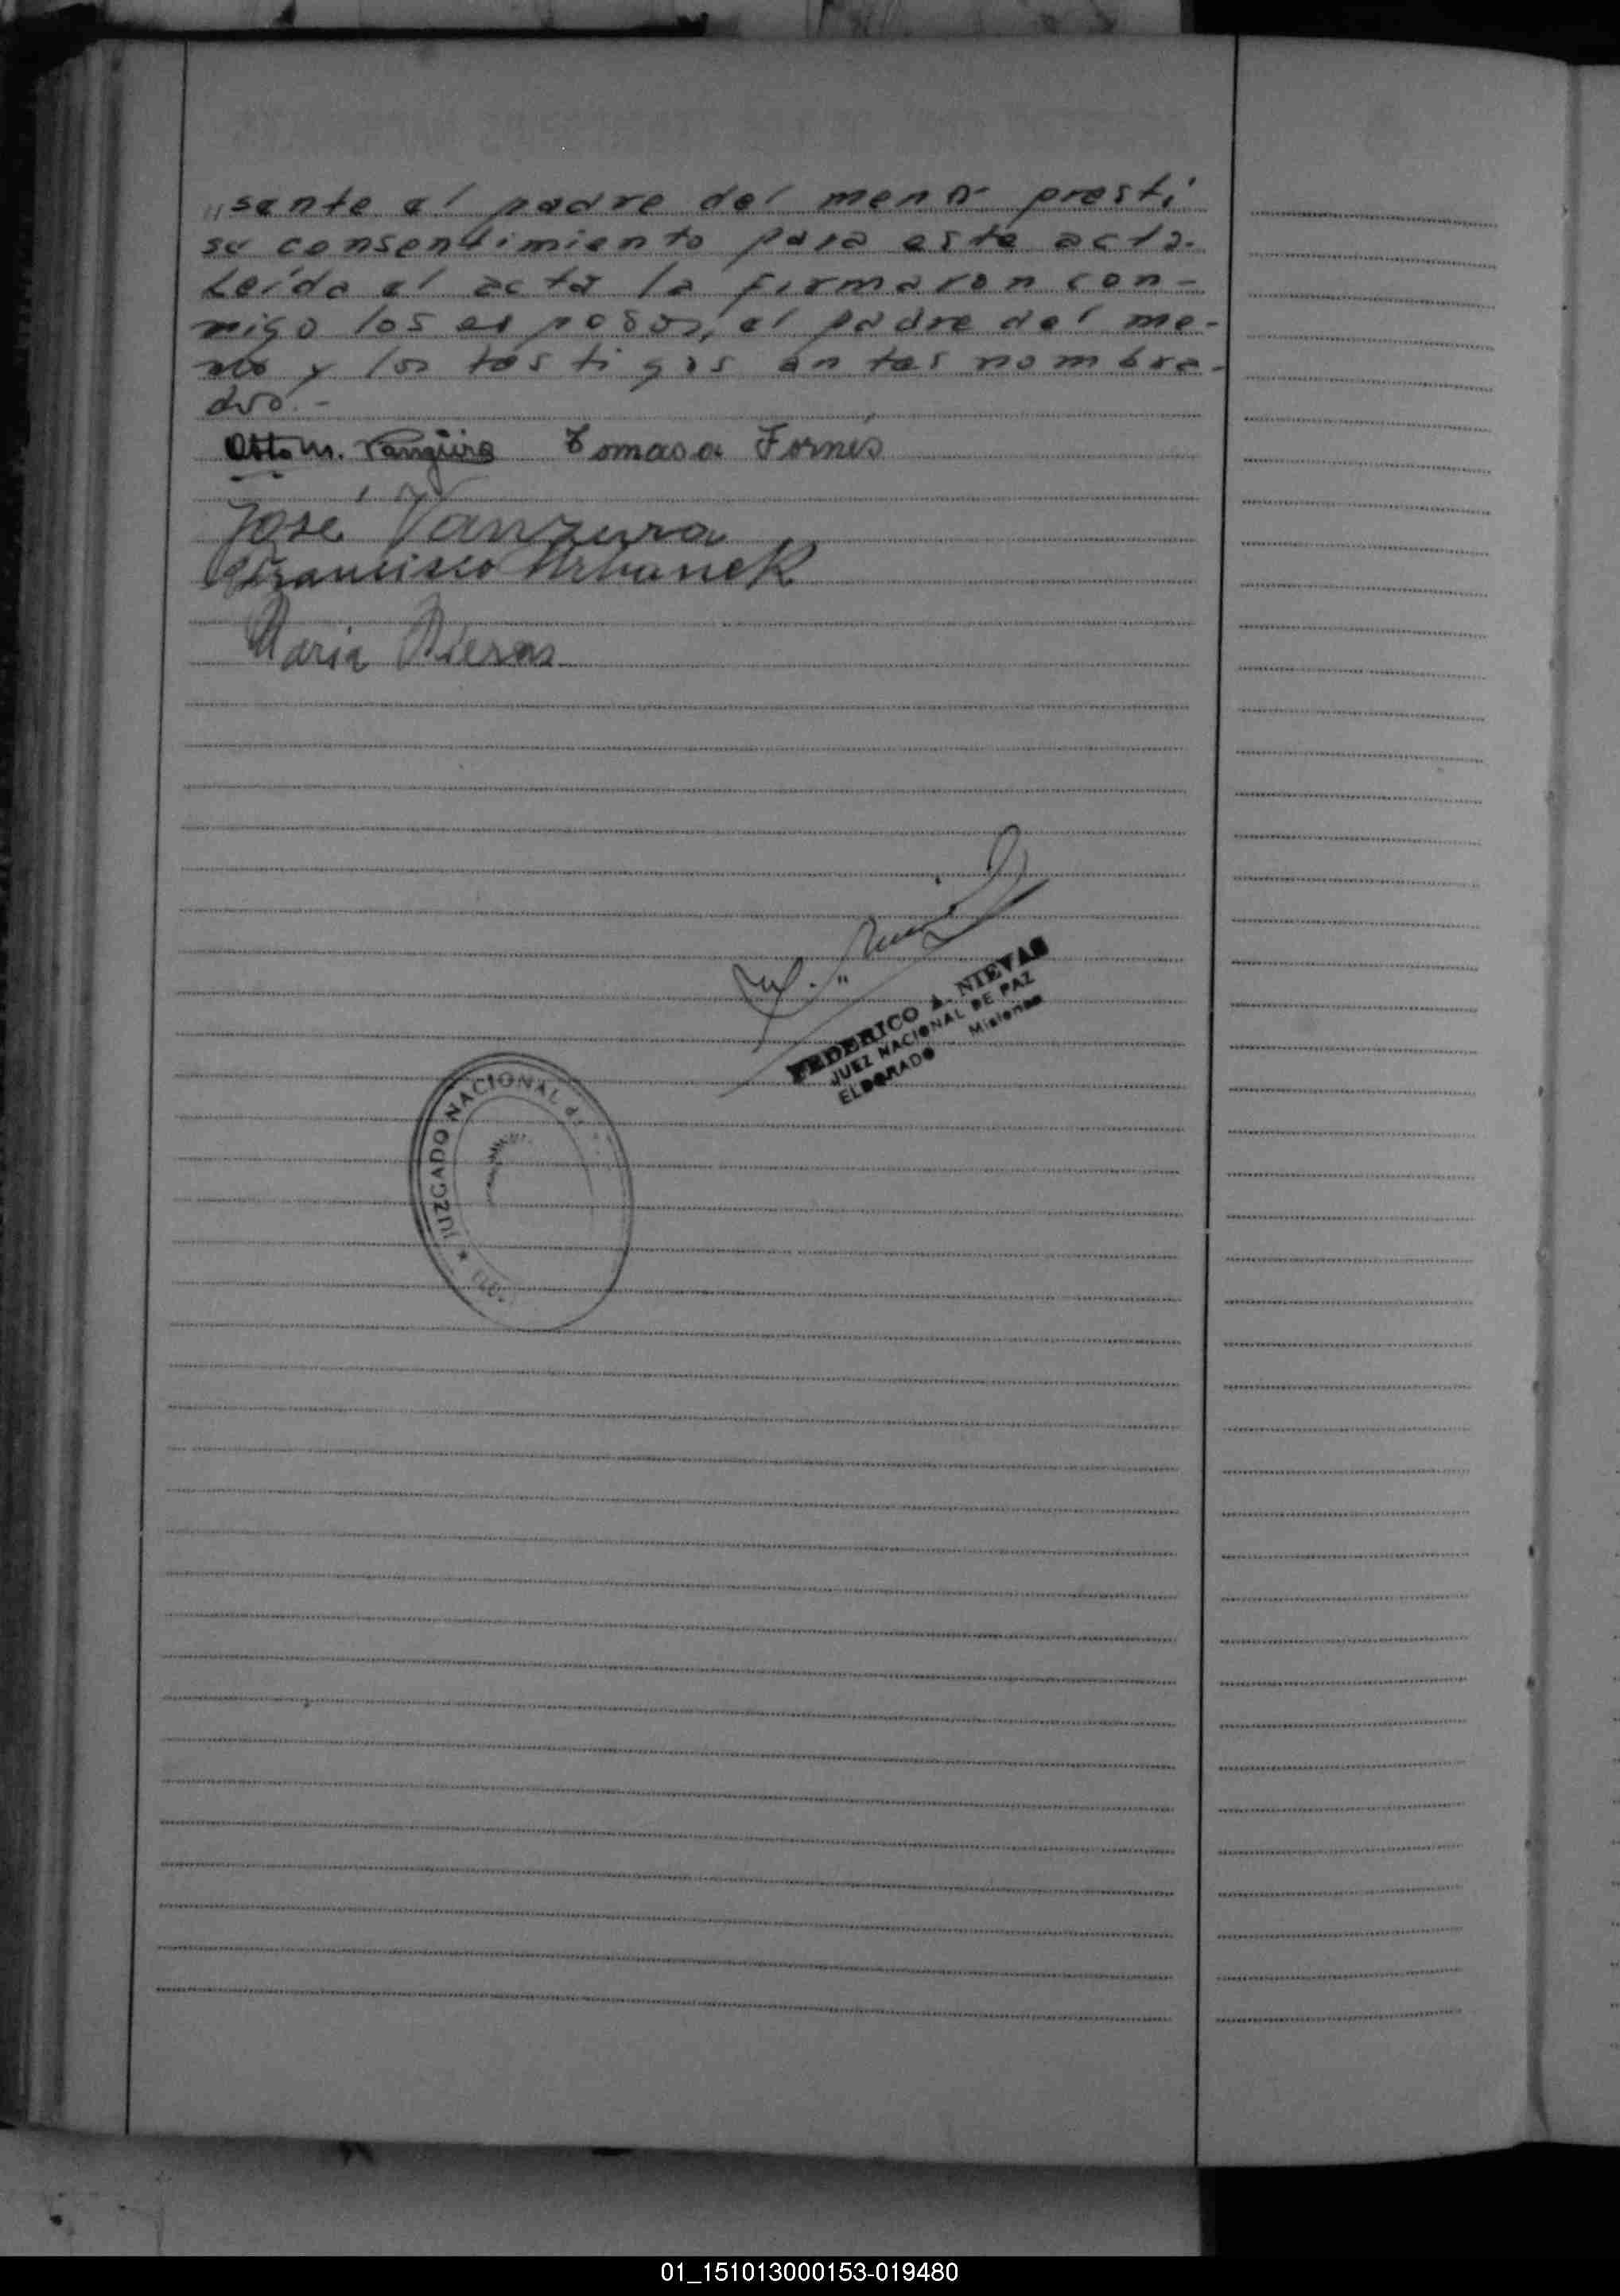 "sente el padre del menor prestó
su consentimiento para este acto.
Leída el acta la firmaron con-
migo los esposos, el padre del me-
nor y los testigos antes nombra-
dos.-
Otto M. Vanzura Tomasa Fornés
José Vanzura
Francisco Urbanek
Maria
FEDERICO A. NIEVAS
JUEZ NACIONAL DE PAZ
ELDORADO - Misiones
JUZGADO NACIONAL de
01_151013000153-019480